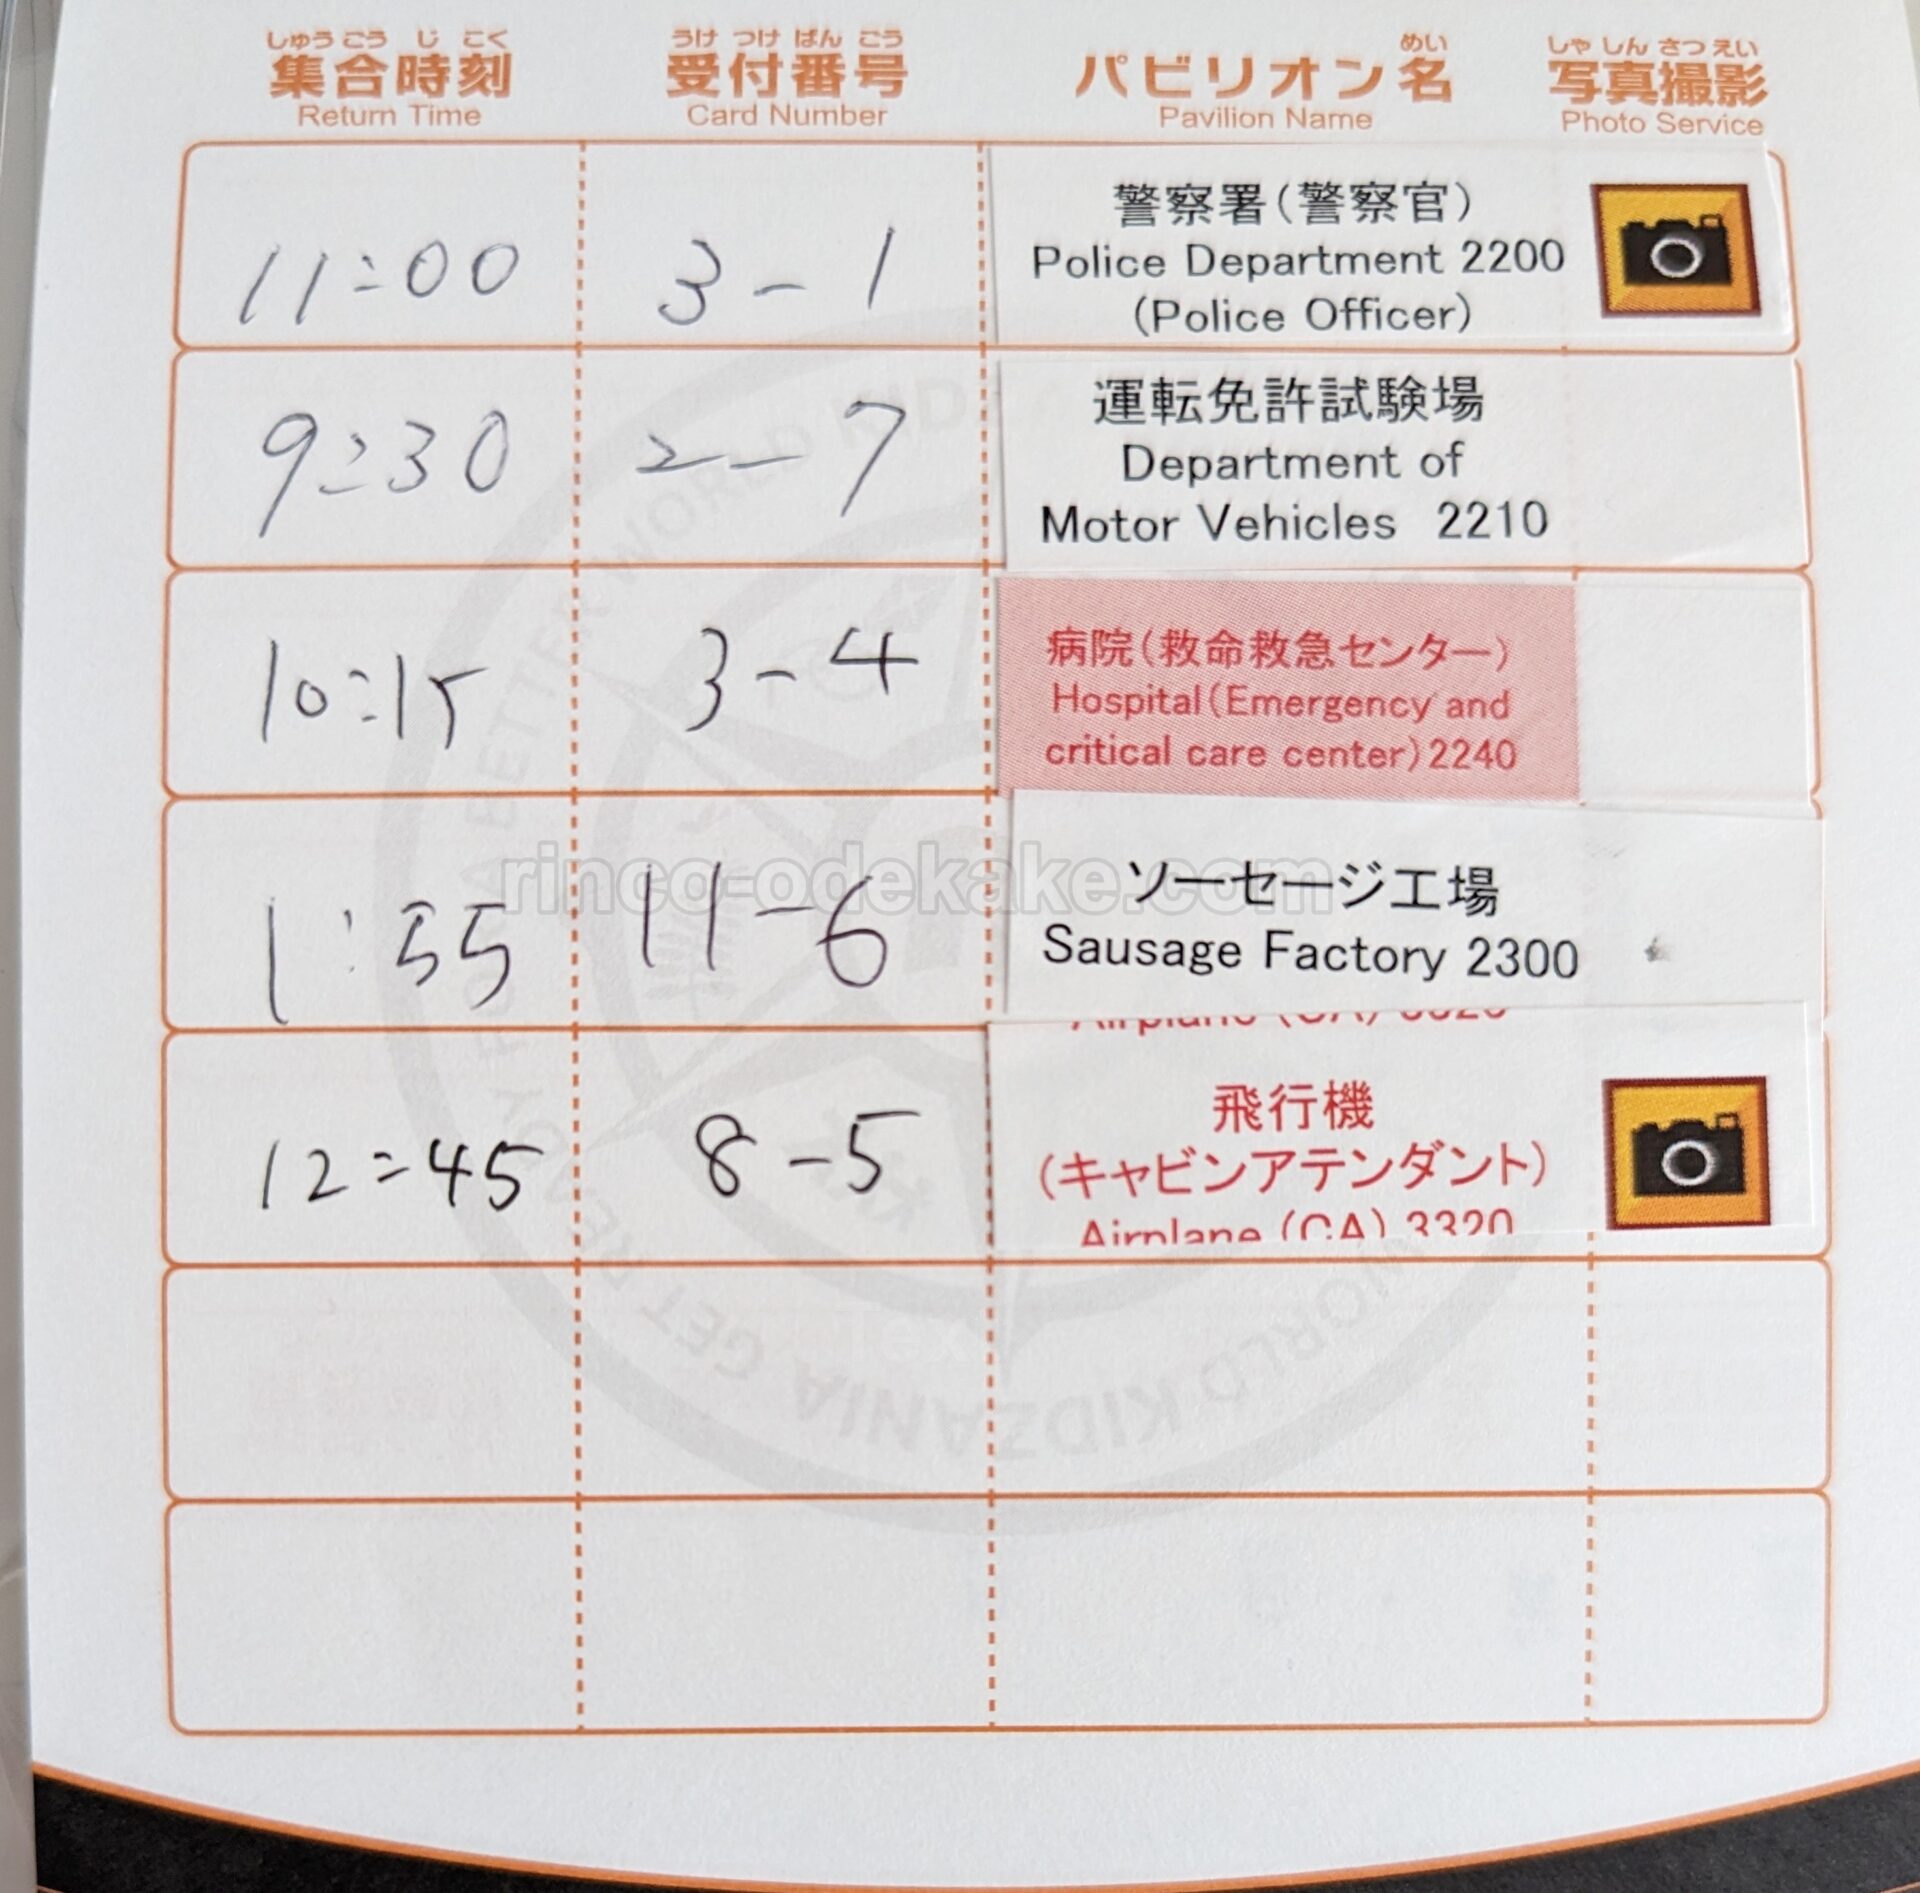 しゅう ごう じ こく
集合時刻
Return Time
うけ つけ ばん ごう
受付番号
Card Number
めい
パビリオン名
Pavilion Name
しゃ しん さつ えい
写真撮影
Photo Service
11:00
3-1
警察署(警察官)
Police Department 2200
(Police Officer)
9:30
2-7
運転免許試験場
Department of
Motor Vehicles 2210
10:15
3-4
病院(救命救急センター)
Hospital(Emergency and
critical care center)2240
1:55
11-6
ソーセージ工場
Sausage Factory 2300
Airplane (CA) 3320
12:45
8-5
飛行機
(キャビンアテンダント)
Airplane (CA) 3320
rinco-odekake.com
WORLD KIDZANIA GET READY FOR A BETTER WORLD KID